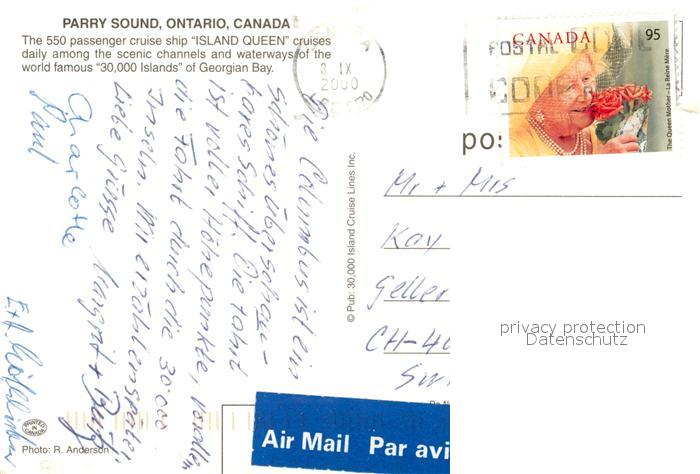 PARRY SOUND, ONTARIO, CANADA
The 550 passenger cruise ship "ISLAND QUEEN" cruises
daily among the scenic channels and waterways of the
world famous "30,000 Islands" of Georgian Bay.
IX
2000
POSTAL CODE
CANADA 95
The Queen Mother – La Reine Mère
Die Columbus ist ein
schönes überschau-
bares Schiff. Die Fahrt
ist voller Höhepunkte, vor allem
die Fahrt durch die 30'000
Inseln. Wir erzählen später,
Liebe Grüsse Margrit +
Charlotte
Paul
© Pub: 30,000 Island Cruise Lines Inc.
pos
Mr + Mrs
Kay
Geller
CH-40
Sw
privacy protection
Datenschutz
Air Mail Par avi
PRINTED IN CANADA
Photo: R. Anderson